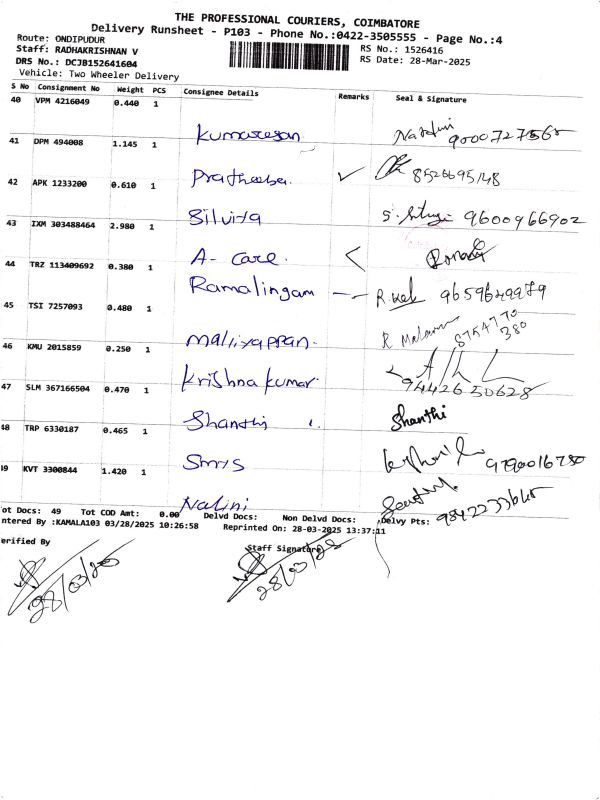 THE PROFESSIONAL COURIERS, COIMBATORE
Delivery Runsheet - P103 - Phone No.:0422-3505555 - Page No.:4
Route: ONDIPUDUR
RS No.: 1526416
Staff: RADHAKRISHNAN V
RS Date: 28-Mar-2025
DRS No.: DCJB152641604
Vehicle: Two Wheeler Delivery
S No Consignment No Weight PCS Consignee Details Remarks Seal & Signature
40 VPM 4216049 0.440 1
Kumaresan
41 DPM 494008 1.145 1
Pratheeba. 8526695148
42 APK 1233200 0.610 1
Silviya 9600966902
43 IXM 303488464 2.980 1
A- Care.
44 TRZ 113409692 0.380 1
Ramalingam 9659649979
45 TSI 7257093 0.480 1
Maliyappan. 8754770
380
46 KMU 2015859 0.250 1
Krishna kumar. 9442650628
47 SLM 367166504 0.470 1
Shanthi Shanthi
48 TRP 6330187 0.465 1
49 KVT 3300844 1.420 1
Nalini
ot Docs: 49 Tot COD Amt: 0.00 Delvd Docs: Non Delvd Docs: Delvy Pts:
ntered By :KAMALA103 03/28/2025 10:26:58 Reprinted On: 28-03-2025 13:37:11
erified By Staff Signature
28/03/25 28/03/25